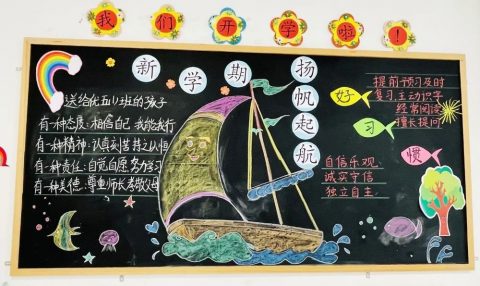 我们开学啦！
新学期
扬帆起航
送给优五(1)班的孩子
有一种态度:相信自己 我能我行
有一种精神:认真刻苦 持之以恒
有一种责任:自觉自愿 努力学习
有一种美德:尊重师长 孝敬父母
好习惯
提前预习及时
复习.主动识字
经常阅读
擅长提问
自信乐观、
诚实守信
独立自主.